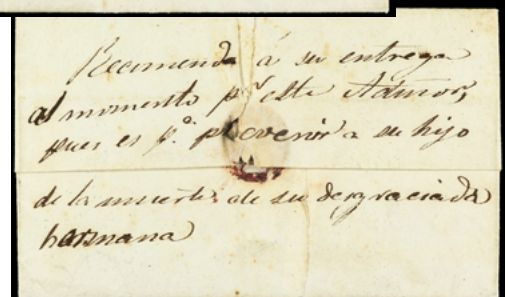 Recomenda á su entrega
al momento pr. este Admor,
pues es p.º prevenir a su hijo
de la muerte de su desgraciada
hermana